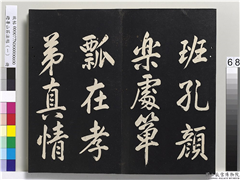 班孔顏
樂處簞
瓢在孝
弟真情
68